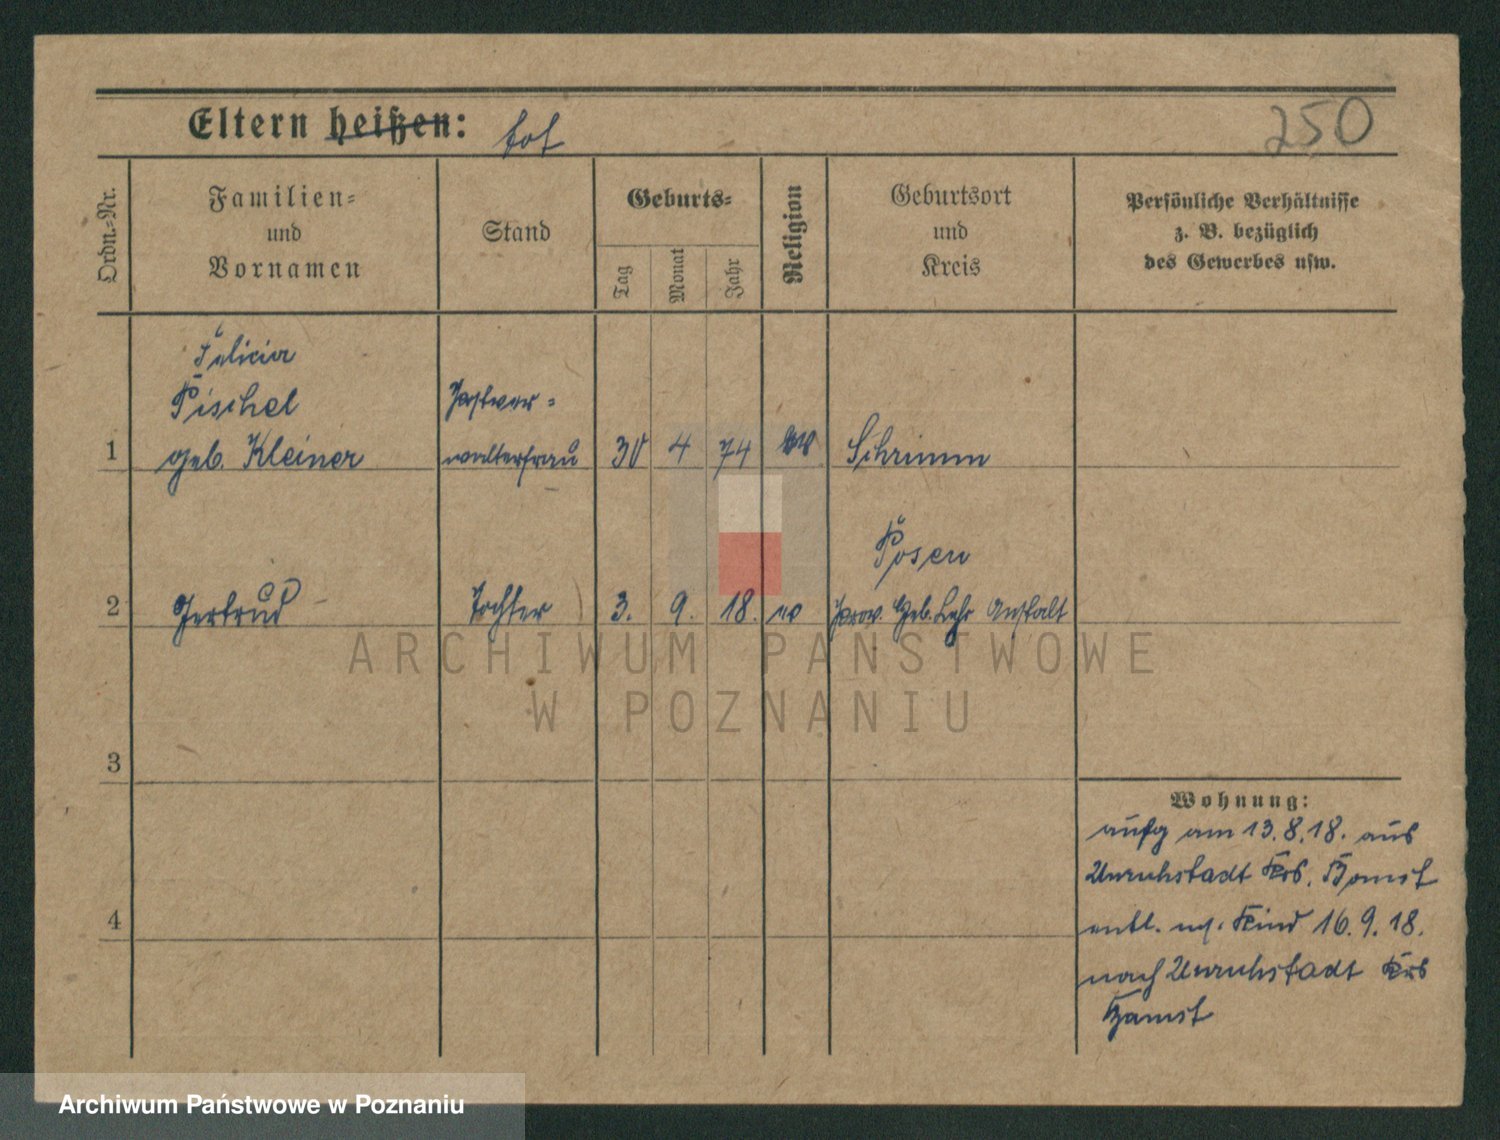 Eltern heißen: tot
250
Ordn.-Nr.
Familien-
und
Vornamen
Stand
Geburts-
Tag
Monat
Jahr
Religion
Geburtsort
und
Kreis
Persönliche Verhältnisse
z. B. bezüglich
des Gewerbes usw.
Felicia
Pischel
geb. Kleiner
Postver-
walterfrau
1
30
4
74
Schrimm
Posen
2
Gertrud
Tochter
3.
9.
18.
Prov. Heb. Lehr Anstalt
ARCHIWUM PAŃSTWOWE
W POZNANIU
3
Wohnung:
aufg am 13.8.18. aus
Unruhstadt Krs. Bomst
4
entl. m. Kind 16.9.18.
nach Unruhstadt Krs
Bomst
Archiwum Państwowe w Poznaniu